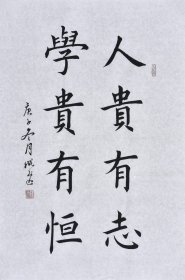 人貴有志
學貴有恒
庚子冬月